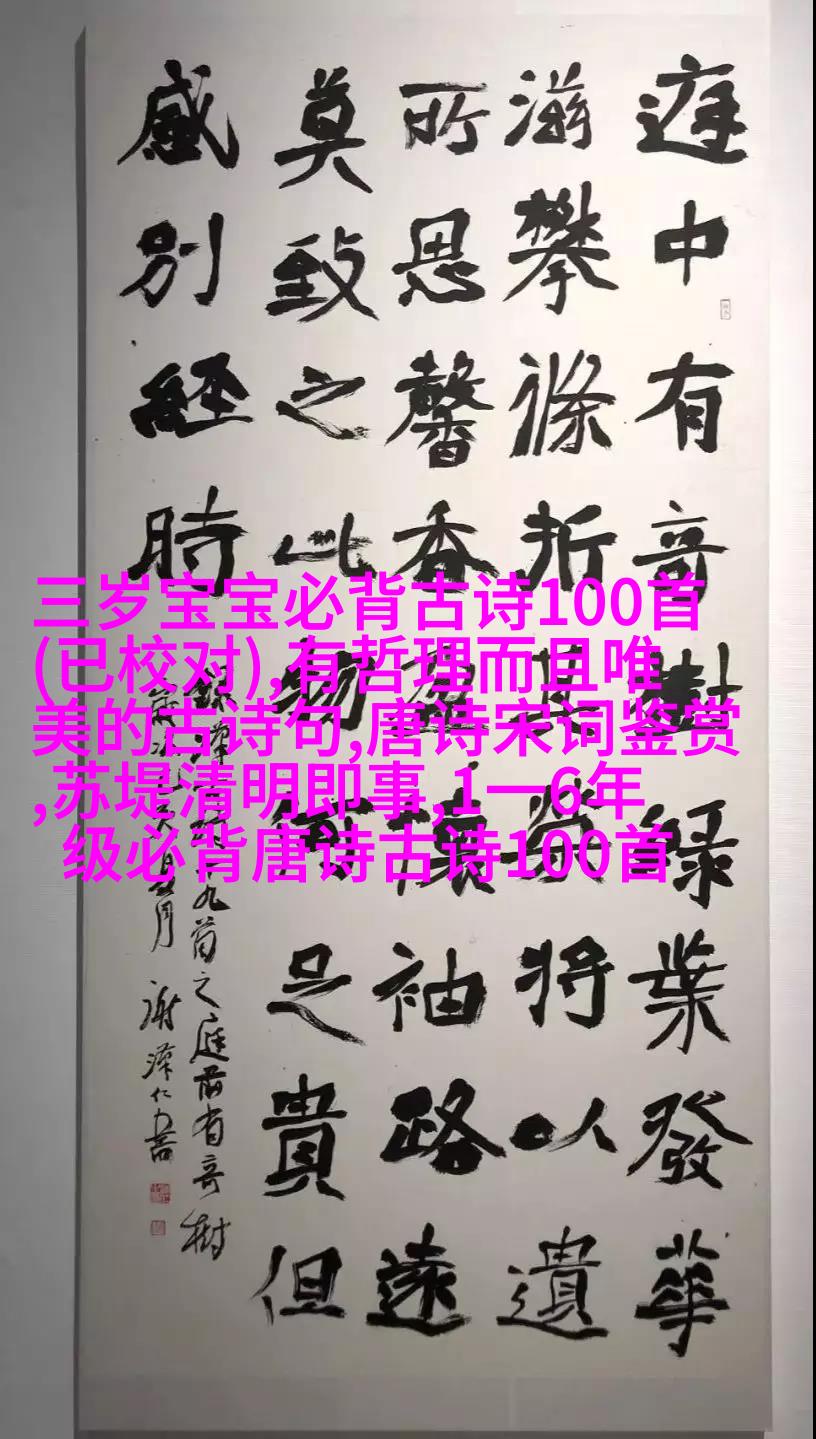 三岁宝宝必背古诗100首
(已校对),有哲理而且唯
美的古诗句,唐诗宋词鉴赏
,苏堤清明即事,1一6年
级必背唐诗古诗100首
庭中有奇樹緑葉發華
滋攀條折其榮將以遺
所思馨香盈懷袖路遠
莫致之此物何足貴但
感別經時
九首之庭前有奇樹
月 謝澤仁書